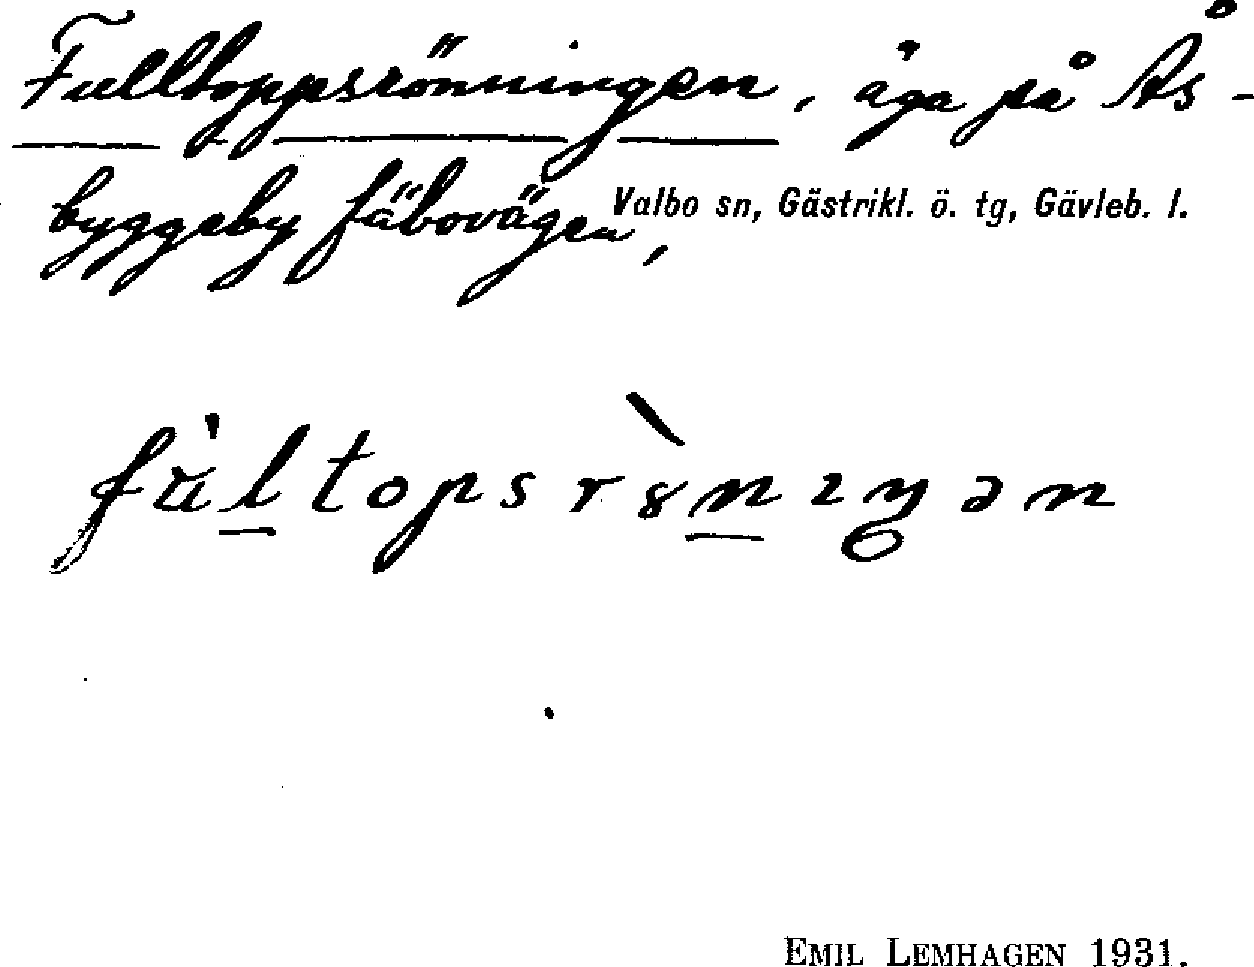 Fulltoppsrönningen, äga på Ås-
byggeby fäbovägen,
Valbo sn, Gästrikl. ö. tg, Gävleb. l.
fu̇̀l̲topsrȣ̀n̲ıŋən
EMIL LEMHAGEN 1931.